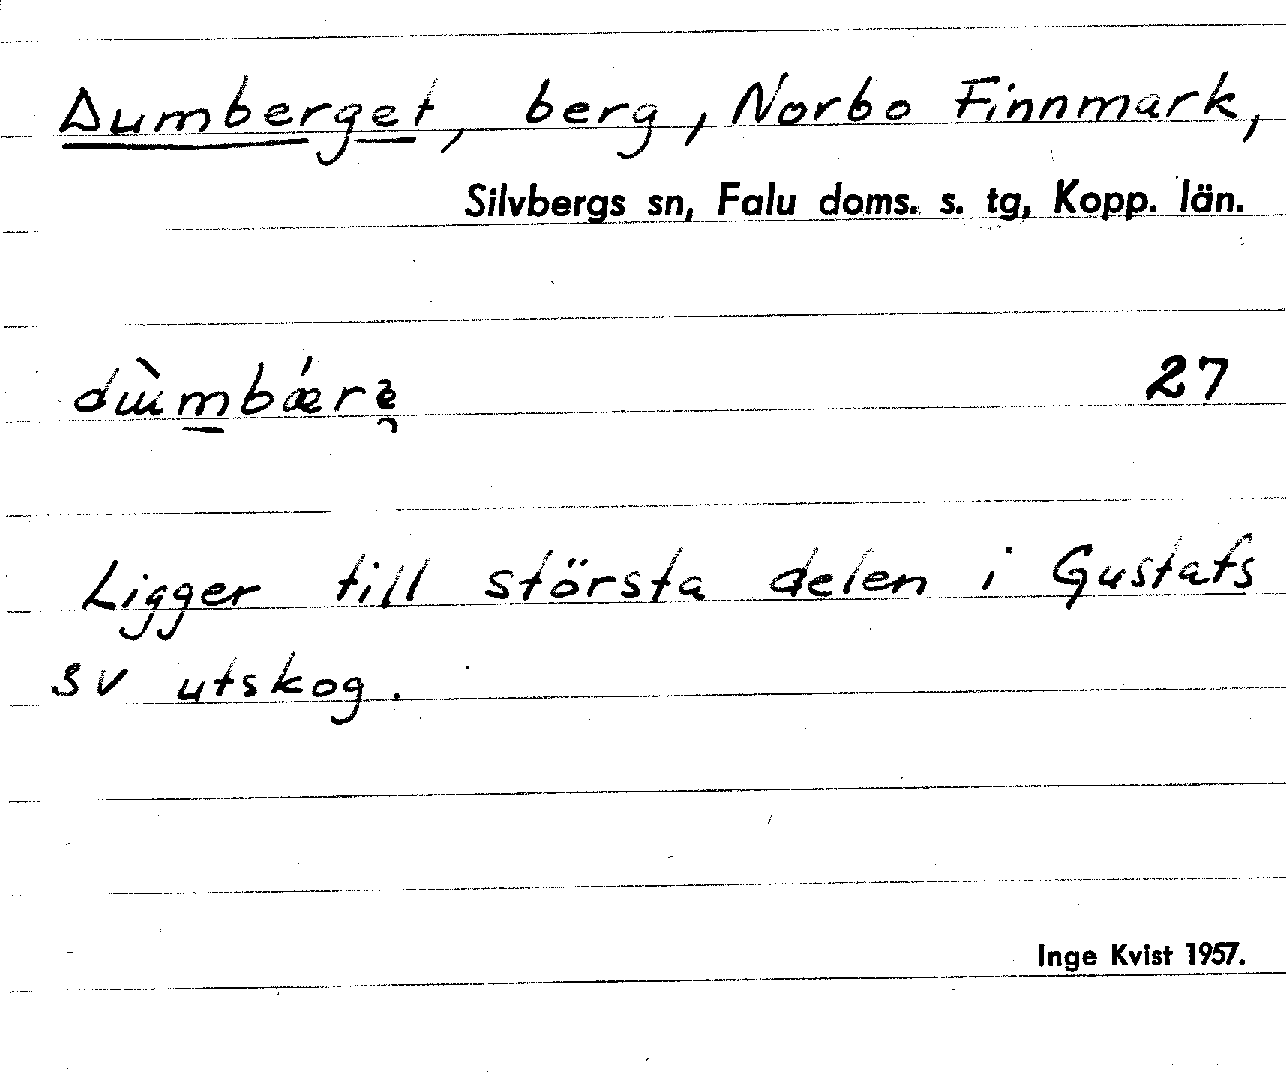 Dumberget, berg, Norbo Finnmark,
Silvbergs sn, Falu doms. s. tg, Kopp. län.
27
Ligger till största delen i Gustafs
sv utskog.
Inge Kvist 1957.